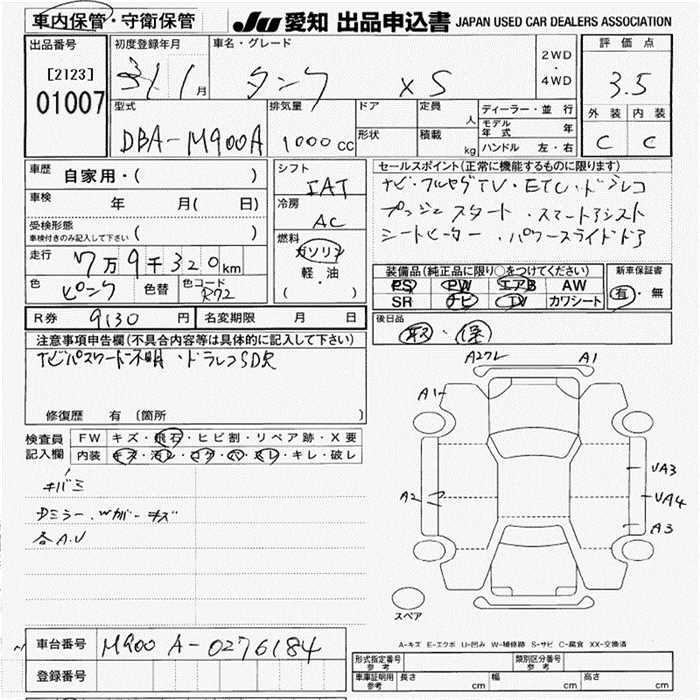 車内保管・守衛保管
JU 愛知 出品申込書 JAPAN USED CAR DEALERS ASSOCIATION
出品番号
[2123]
01007
初度登録年月
31 1 月
車名・グレード
タンク XS
2WD
・
4WD
評価点
3.5
外装 内装
C C
型式
DBA-M900A
排気量
1000 CC
ドア
形状
定員
人
積載
kg
ディーラー・並行
モデル年式 年
ハンドル 左・右
車歴
自家用・( )
車検 年 月( 日)
受検形態
車検付きのみ記入して下さい ( )
走行 7万9千320km
色 ピンク 色替 色コード R72
シフト
IAT
冷房
AC
燃料
ガソリン
軽・油
( )
セールスポイント(正常に機能するものに限ります)
ナビ・フルセグTV・ETC・ドラレコ
プッシュスタート・スマートアシスト
シートヒーター・パワースライドドア
装備品(純正品に限り○をつけてください)
PS PW エアB AW
SR ナビ TV カワシート
新車保証書
有・無
R券 9130 円 名変期限 月 日
後日品
取・保
注意事項申告欄(不具合内容等は具体的に記入して下さい)
ナビパスワード不明・ドラレコSD欠
修復歴 有 (箇所 )
検査員
記入欄
FW キズ・飛石・ヒビ割・リペア跡・X要
内装 キズ・汚レ・コゲ・穴・スレ・キレ・破レ
キバミ
Dミラー、Wガーキズ
各A.U
A2クレ A1
A1
A2
UA3
UA4
A3
スペア
A-キズ E-エクボ U-凹み W-補修跡 S-サビ C-腐食 XX-交換済
車台番号 M900A-0276184
登録番号
形式指定番号
参考
類別区分番号
参考
車庫証明用
参考
長さ cm 幅 cm 高さ cm